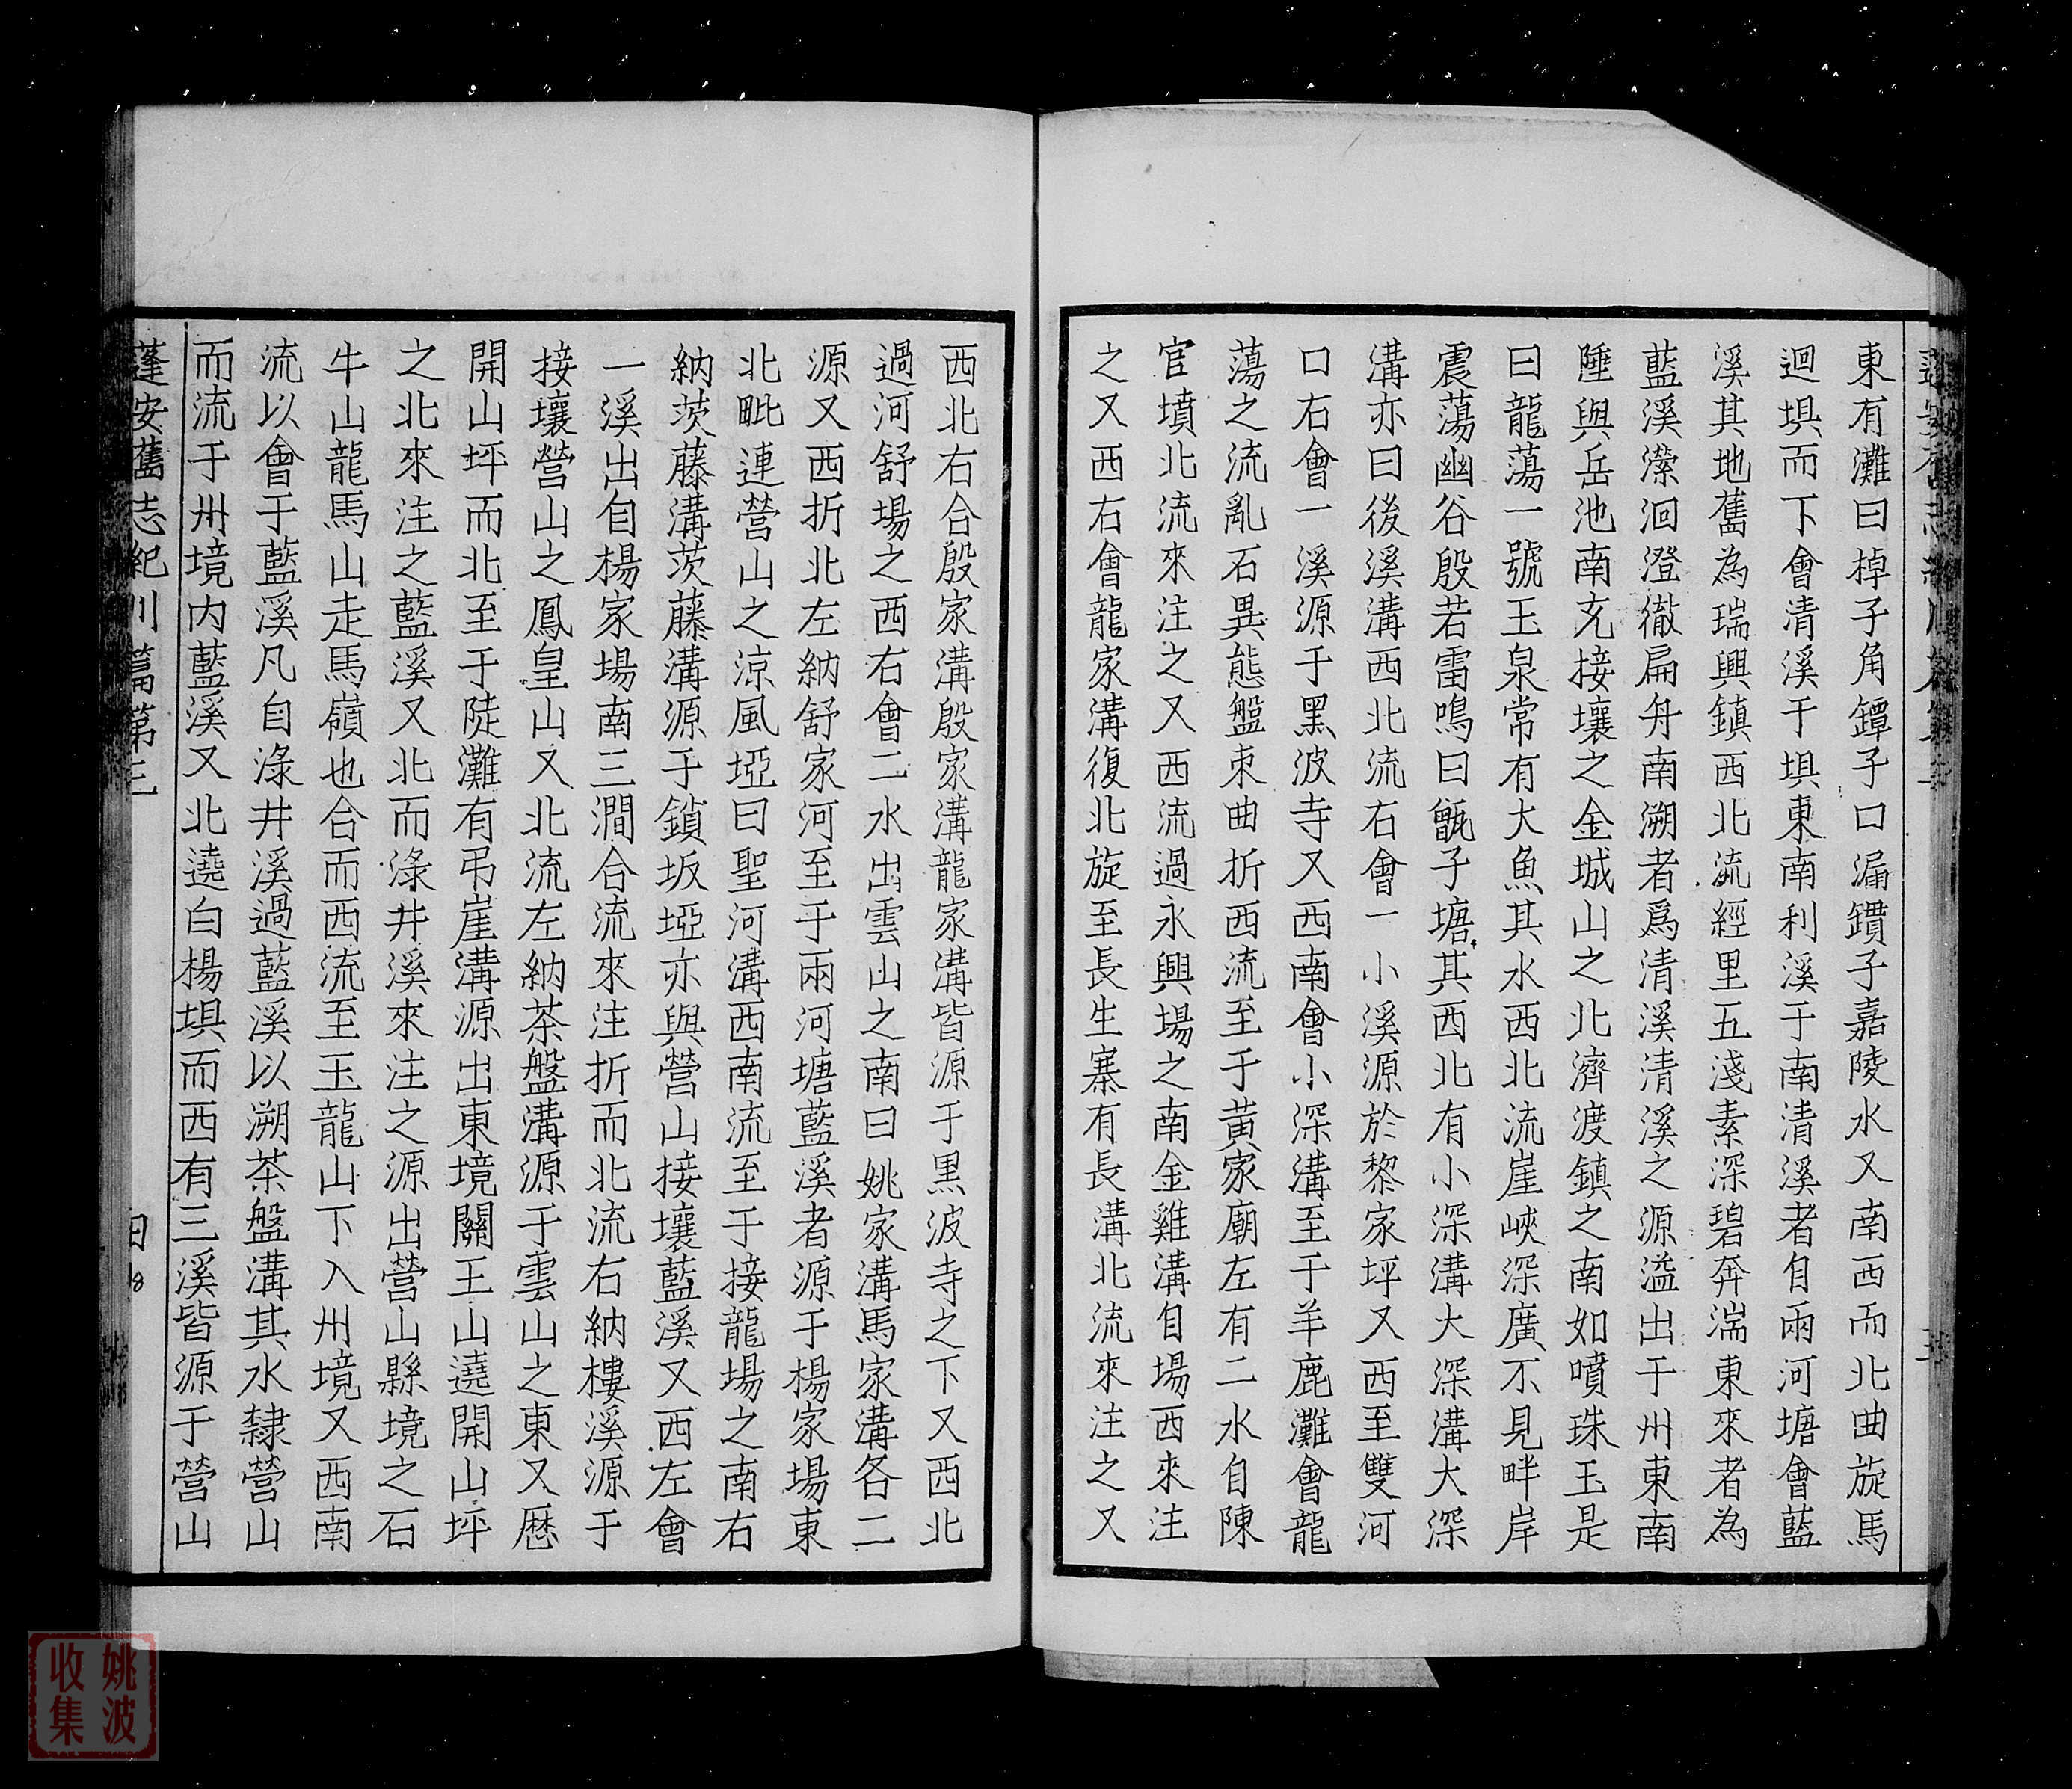 東有灘曰棹子角鐔子口漏鑽子嘉陵水又南西而北曲旋馬
迴埧而下會清溪于埧東南利溪于南清溪者自兩河塘會藍
溪其地舊為瑞興鎮西北流經里五淺素深碧奔湍東來者為
藍溪濴洄澄徹扁舟南溯者爲清溪清溪之源溢出于州東南
陲與岳池南充接壤之金城山之北濟渡鎮之南如噴珠玉是
曰龍蕩一號玉泉常有大魚其水西北流崖峽深廣不見畔岸
震蕩幽谷殷若雷鳴曰甑子塘其西北有小深溝大深溝大深
溝亦曰後溪溝西北流右會一小溪源於黎家坪又西至雙河
口右會一溪源于黑波寺又西南會小深溝至于羊鹿灘會龍
蕩之流亂石異態盤朿曲折西流至于黃家廟左有二水自陳
官墳北流來注之又西流過永興場之南金雞溝自場西來注
之又西右會龍家溝復北旋至長生寨有長溝北流來注之又
西北右合殷家溝殷家溝龍家溝皆源于黑波寺之下又西北
過河舒場之西右會二水出雲山之南曰姚家溝馬家溝各二
源又西折北左納舒家河至于兩河塘藍溪者源于楊家場東
北毗連營山之涼風埡曰聖河溝西南流至于接龍場之南右
納茨藤溝茨藤溝源于鎖坂埡亦與營山接壤藍溪又西左會
一溪出自楊家場南三澗合流來注折而北流右納樓溪源于
接壤營山之鳳皇山又北流左納茶盤溝源于雲山之東又歷
開山坪而北至于陡灘有弔崖溝源出東境關王山遶開山坪
之北來注之藍溪又北而淥井溪來注之源出營山縣境之石
牛山龍馬山走馬嶺也合而西流至玉龍山下入州境又西南
流以會于藍溪凡自淥井溪過藍溪以溯茶盤溝其水隸營山
而流于州境内藍溪又北遶白楊埧而西有三溪皆源于營山
蓬安舊志紀川篇第三
姚波
收集